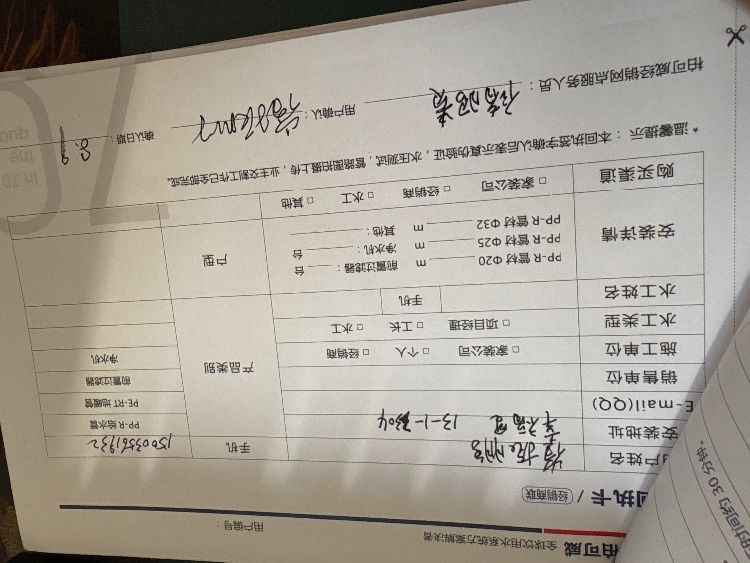 柏可威 全球饮用水系统方案解决者
用户编号：
回执卡 / 经销商联
户姓名
手机 15003561932
安装地址 13-1-3304
E-mail(QQ)
销售单位
施工单位 □ 家装公司 □ 个人 □ 经销商
水工类型 □ 项目经理 □ 工长 □ 水工
水工姓名 手机
产品类别
PP-R 给水管
PE-RT 地暖管
前置过滤器
净水机
安装详情
PP-R 管材 Φ20 m 前置过滤器： 台
PP-R 管材 Φ25 m 净水机： 台
PP-R 管材 Φ32 m 其他：
户型
购买渠道 □ 家装公司 □ 经销商 □ 水工 □ 其他
* 温馨提示：本回执签字确认后表示真伪验证，水压测试，管路图拍摄上传，业主交割工作已全部完成。
柏可威经销网点服务人员：
用户确认：
确认日期： 8.9
的时间约 30 分钟。
In 70
the
quo